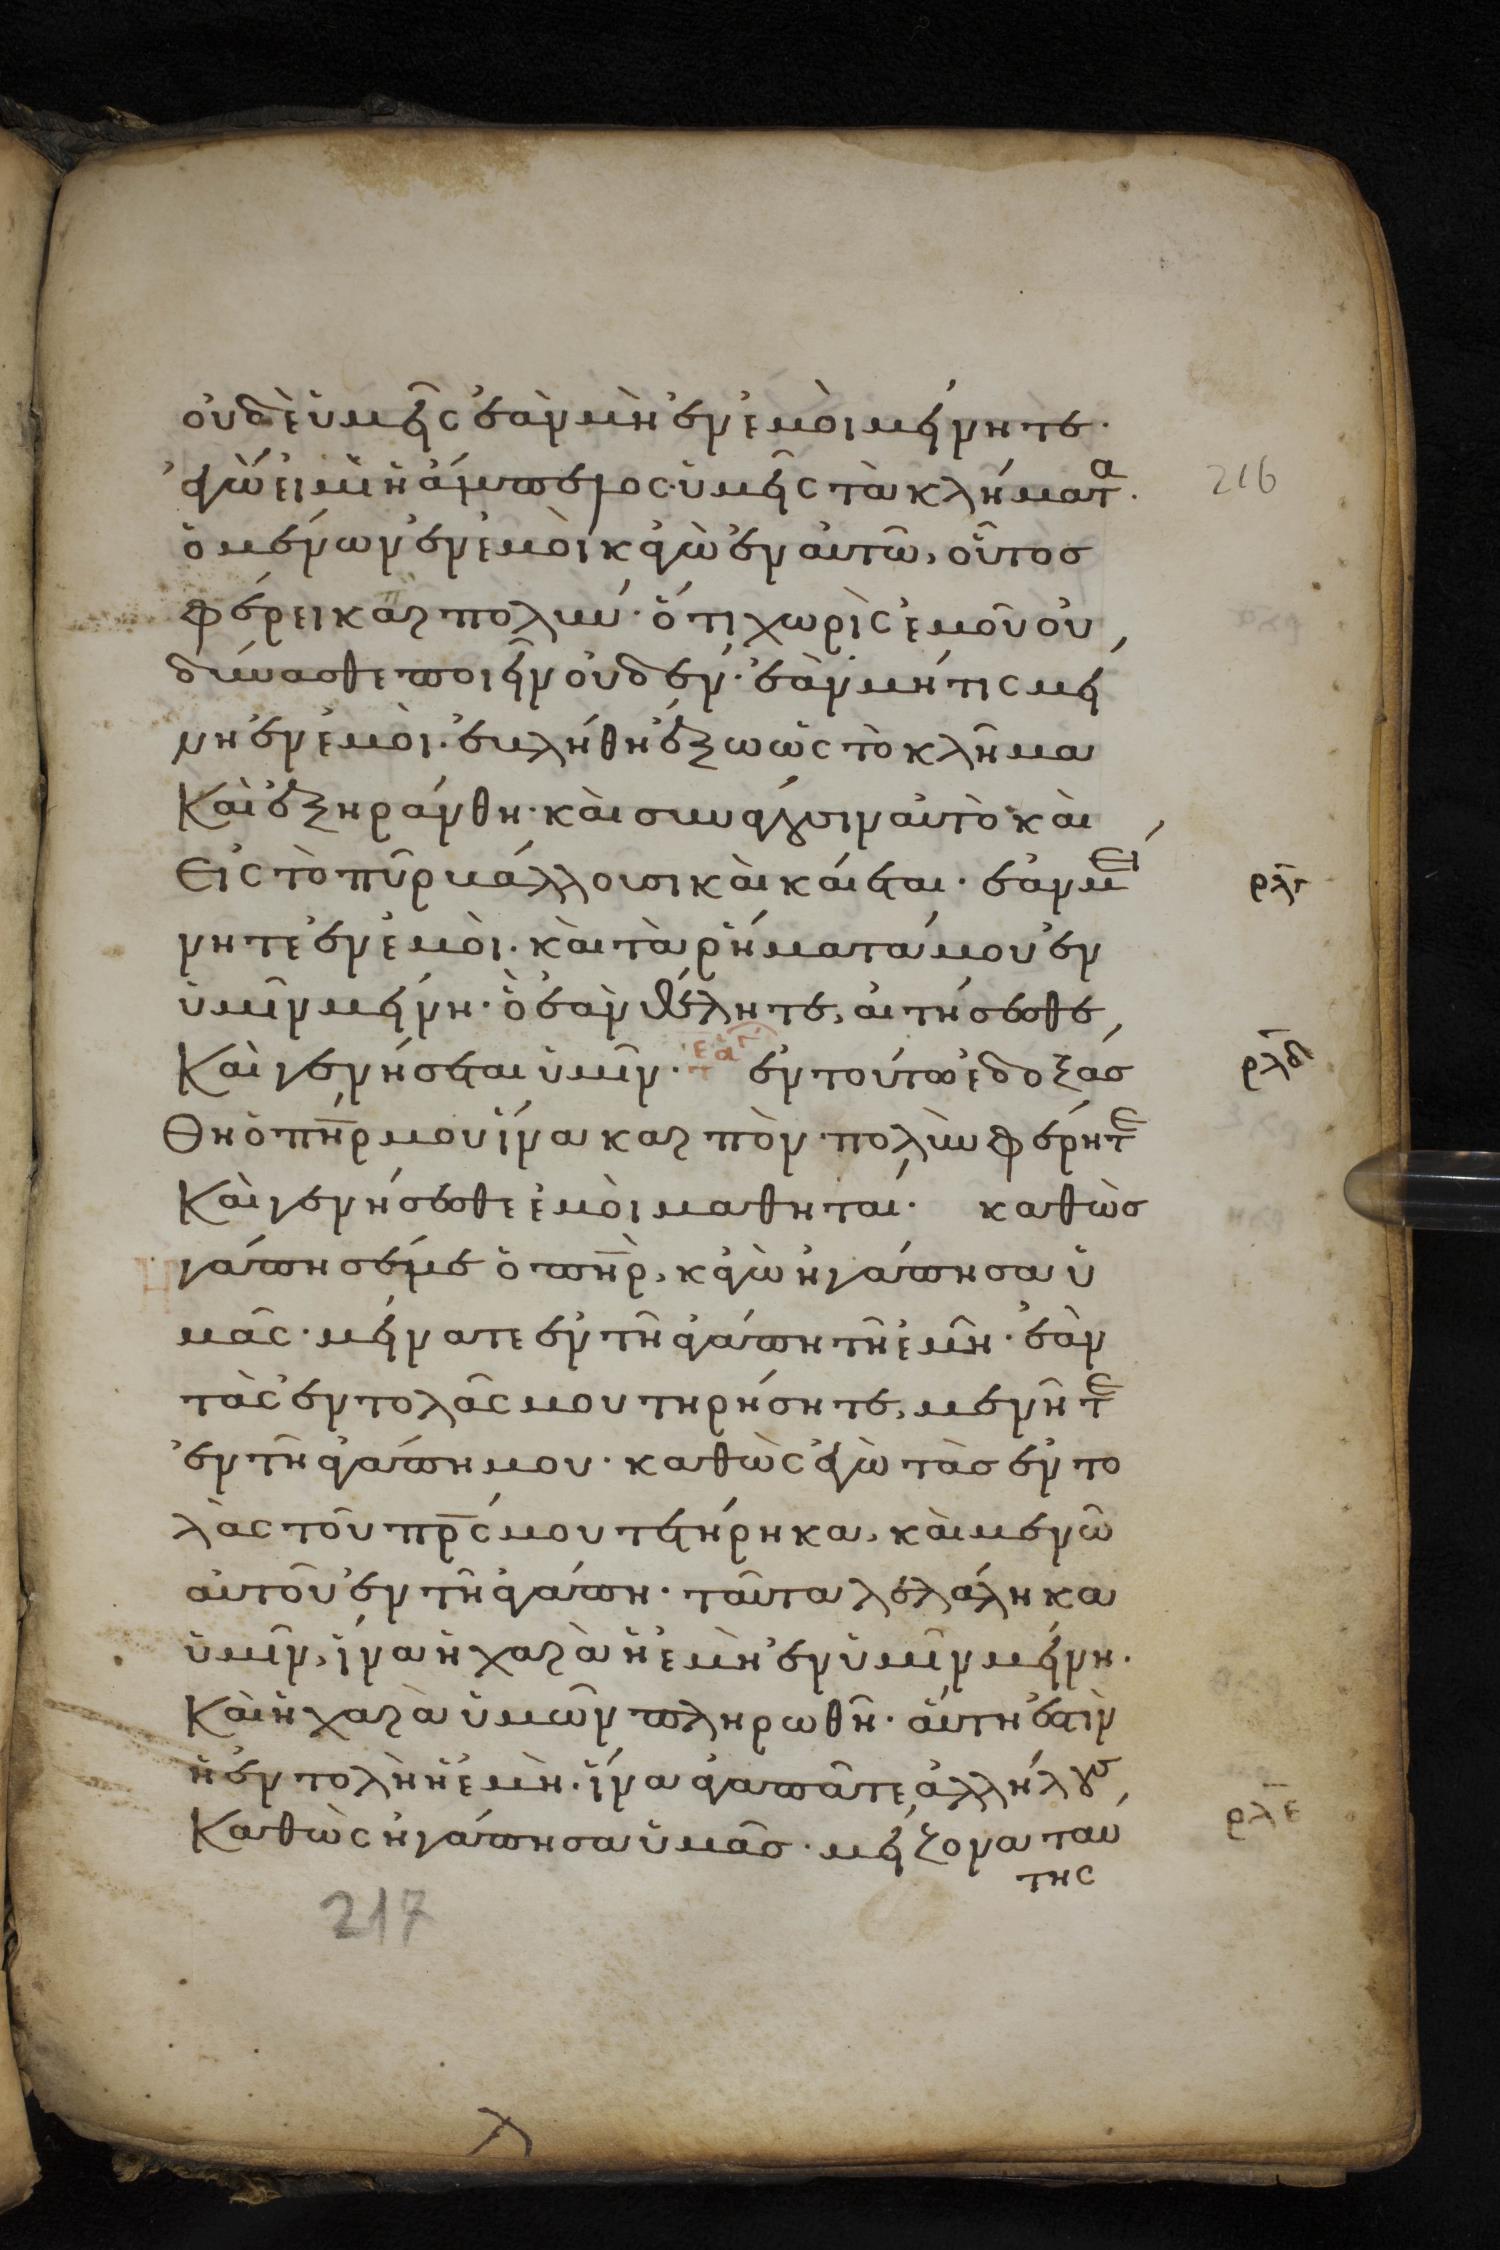 οὐδὲ ὑμεῖς ἐὰν μὴ ἐν ἐμοὶ μείνητε·
ἐγώ εἰμι ἡ ἄμπελος· ὑμεῖς τὰ κλήματα·
216
ὁ μένων ἐν ἐμοὶ κἀγὼ ἐν αὐτῶ, οὗτοσ
φέρει καρπὸν πολύν· ὅτι χωρὶς ἐμοῦ οὐ
δύνασθε ποιεῖν οὐδέν· ἐὰν μή τις μεί
νη ἐν ἐμοὶ· ἐβλήθη ἔξω ὡς τὸ κλῆμα
Καὶ ἐξηράνθη· καὶ συνάγουσιν αὐτὸ καὶ
Εἰς τὸ πῦρ βάλλουσι καὶ καίεται· ἐὰν μεί
ρλγ
νητε ἐν ἐμοὶ· καὶ τὰ ῥήματά μου ἐν
ὑμῖν μείνη· ὃ ἐὰν θέλητε, αἰτήσεσθε,
Καὶ γενήσεται ὑμῖν· ἐν τούτω ἐδοξάσ
ρλδ
Θη ὁ πηρ μου ἵνα καρπὸν πολὺν φέρητε
Καὶ γενήσεσθε ἐμοὶ μαθηταί· καθὼσ
Ηγάπησέ με ὁ πηρ, κἀγὼ ἠγάπησα ὑ
μᾶς· μείνατε ἐν τῆ ἀγάπη τῆ ἐμῆ· ἐὰν
τὰς ἐντολάς μου τηρήσητε, μενῆτε
ἐν τῆ ἀγάπη μου· καθὼς ἐγὼ τὰσ ἐντο
λὰς τοῦ πρς μου τετήρηκα, καὶ μενῶ
αὐτοῦ ἐν τῆ ἀγάπη· ταῦτα λελάληκα
ὑμῖν, ἵνα ἡ χαρὰ ἡ ἐμὴ ἐν ὑμῖν μείνη·
Καὶ ἡ χαρὰ ὑμῶν πληρωθῆ· αὕτη ἐστὶν
ἡ ἐντολὴ ἡ ἐμὴ· ἵνα ἀγαπᾶτε ἀλλήλους,
Καθὼς ἠγάπησα ὑμᾶσ· μείζονα ταύ
ρλε
της
217
λ